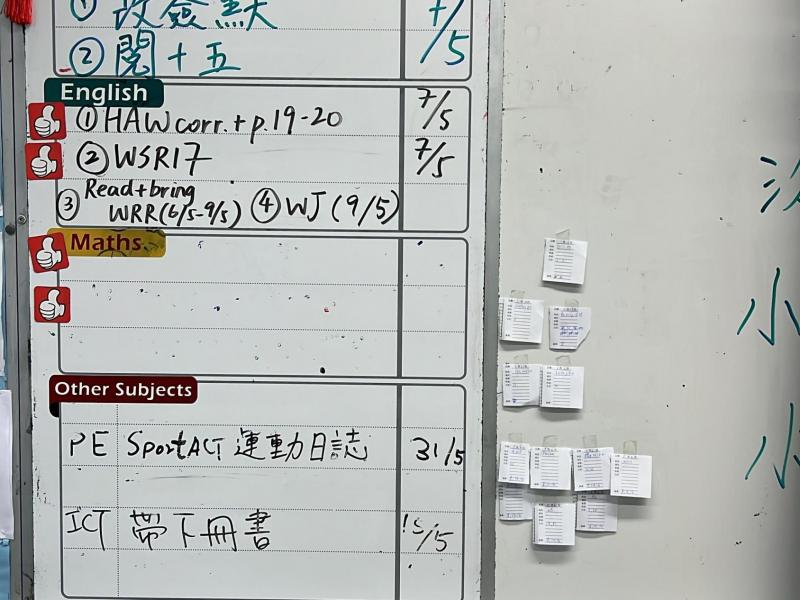 ① 改簽默 7/5
② 閱十五 7/5
English
① HAW corr. + p.19-20 7/5
② WSR17 7/5
③ Read + bring WRR (6/5-9/5) ④ WJ (9/5)
Maths
Other Subjects
PE SportACT 運動日誌 31/5
ICT 帶下冊書 15/5
小
小